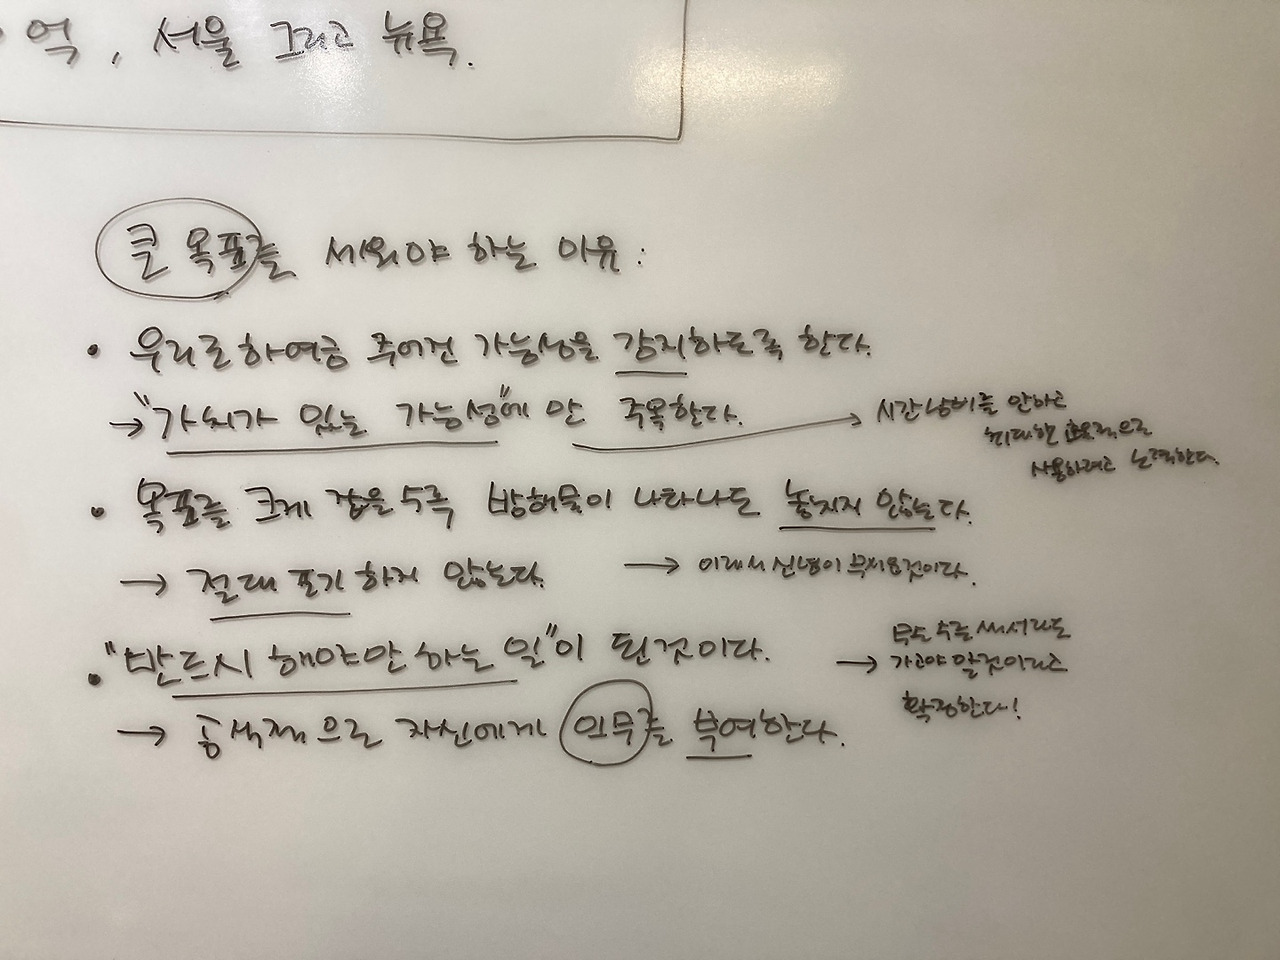 억, 서울 그리고 뉴욕.
큰 목표를 세워야 하는 이유:
• 우리로 하여금 주어진 가능성을 감지하도록 한다.
→ "가치가 있는 가능성"에 만 주목한다.
→ 시간낭비를 안하고
최대한 효율적으로
사용하려고 노력한다.
• 목표를 크게 잡을수록 방해물이 나타나도 놓치지 않는다.
→ 절대 포기하지 않는다.
→ 이래서 신념이 것이다.
• "반드시 해야만 하는 일"이 된것이다.
→ 공식적으로 자신에게 의무를 부여한다.
→ 무슨 수를 써서라도
가고야 말것이라고
확정한다!